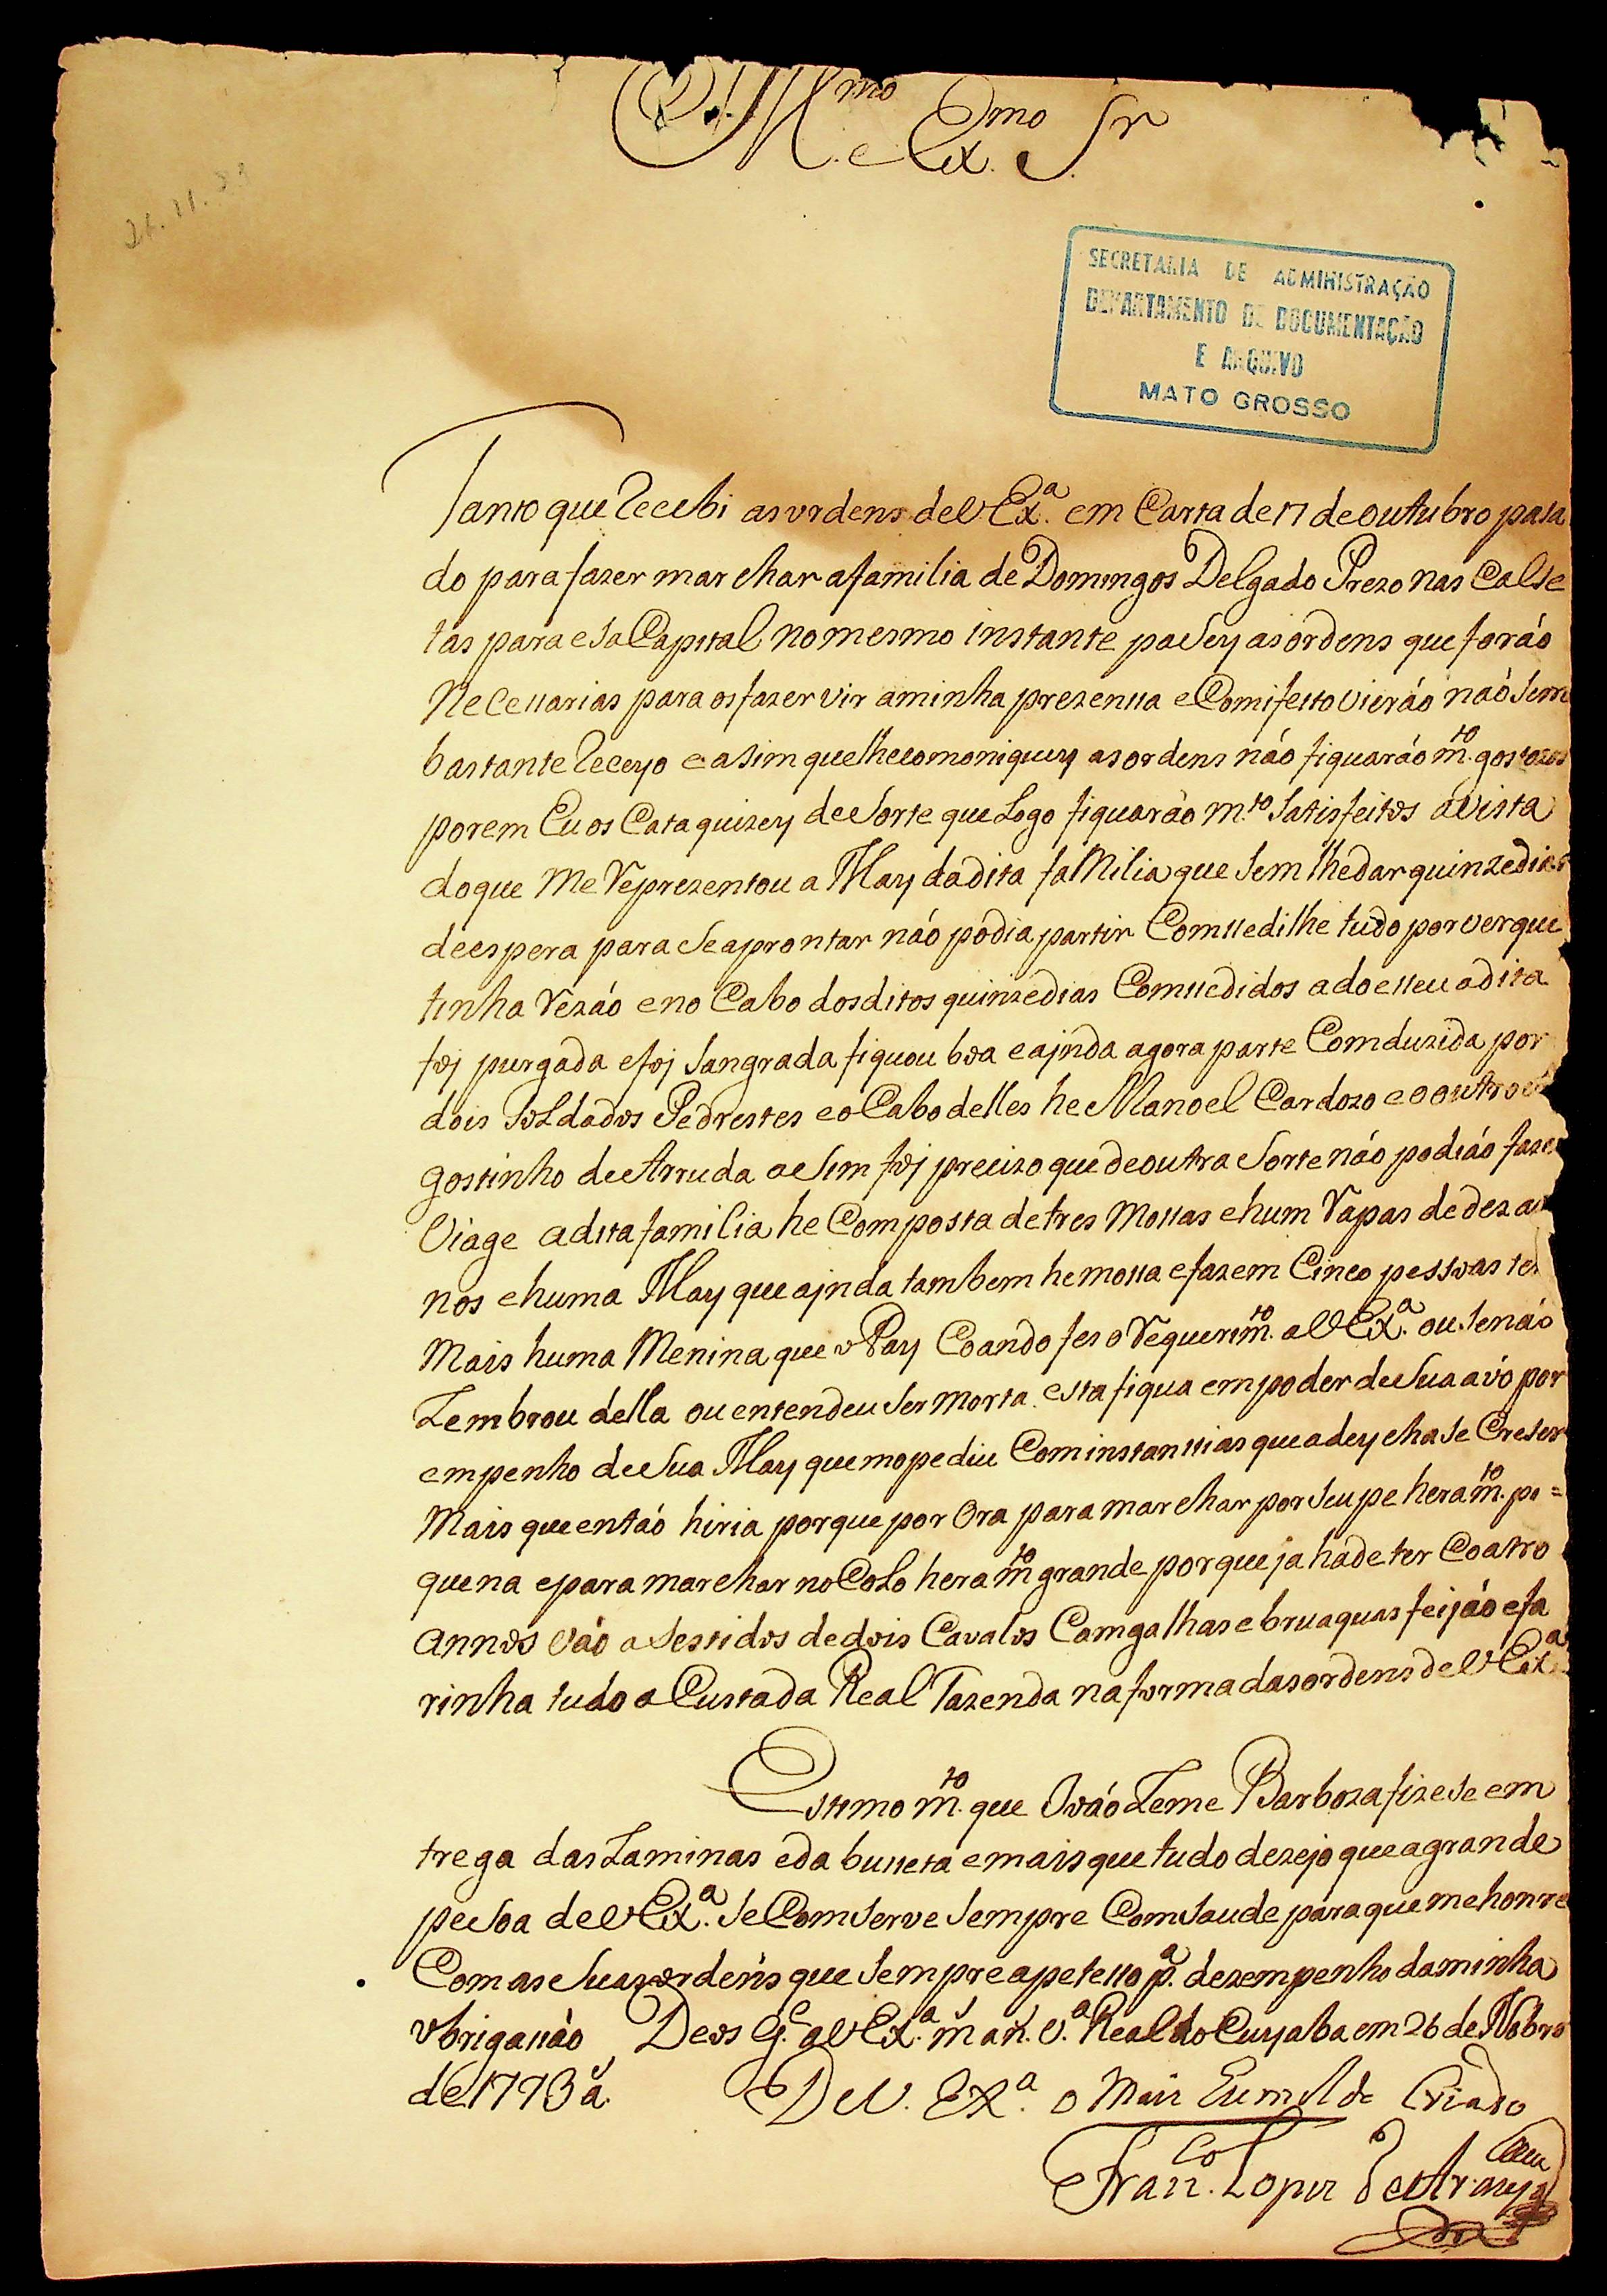 Ill.mo e Ex.mo Sr
21.11.
SECRETARIA DE ADMINISTRAÇÃO
DEPARTAMENTO DE DOCUMENTAÇÃO
E ARQUIVO
MATO GROSSO
Tanto que Recebi as ordens de V. Ex.a em Carta de 17 de outubro pasa
do para fazer marchar a familia de Domingos Delgado Prezo nas Calse
tas para esa Capital no mesmo instante pasey as ordens que foráo
Necessarias para os fazer vir a minha prezenssa e Comifeito vieráo naó Sem
bastante Receyo e asim que lhe comoniquey as ordens náo fiquaráo m.to gostozos
porem Eu os Cataquizey de Sorte que Logo fiquaráo m.to Satisfeitos a vista
do que Me Reprezentou a May da dita faMilia que Sem lhe dar quinze dias
de espera para Se aprontar náo podia partir Comssedilhe tudo por ver que
tinha Rezáo e no Cabo dos ditos quinze dias Comssedidos adoesseu a dita
foj purgada e foj Sangrada fiquou boa e ajnda agora parte Comduzida por
dois SoLdados Pedrestes e o Cabo delles he Manoel Cardozo e o outro
gostinho de Arruda aSim foj precizo que de outra Sorte náo podiáo fazer
Viage a dita familia he Composta de tres Mossas e hum Rapas de dez an
nos e huma May que ajnda tambem he mossa e fazem Cinco pessoas tem
Mais huma Menina que o Pay Coando fes o Requerim.to a V. Ex.a ou Se náo
Lembrou della ou entendeu Ser Morta esta fiqua em poder de Sua avó por
empenho de Sua May que mo pediu Com instanssias que a deychase Creser
Mais que entáo hiria porque por Ora para marchar por Seu pe hera m.to pe=
quena e para marchar no CoLo hera m.to grande porque ja hade ter Coatro
annos váo aSestidos de dois Cavalos Camgalhas e bruaquas feijáo e fa
rinha tudo a Custa da Real Fazenda na forma das ordens de V. Ex.a
Estimo m.to que Joáo Leme Barboza fizese em
trega das Laminas e da busseta e mais que tudo dezejo que a grande
peSoa de V. Ex.a Se ComServe Sempre Com Saude para que me honre
Com as Suas ordens que Sempre apetesso p.a dezempenho da minha
obrigassáo Deos G.e a V. Ex.a m.s an.s V.a Real do Cuyaba em 26 de Nobro
de 1793 a.s De V. Ex.a o Mais Eumilde Criado
Fran.co Lopes de Araujo